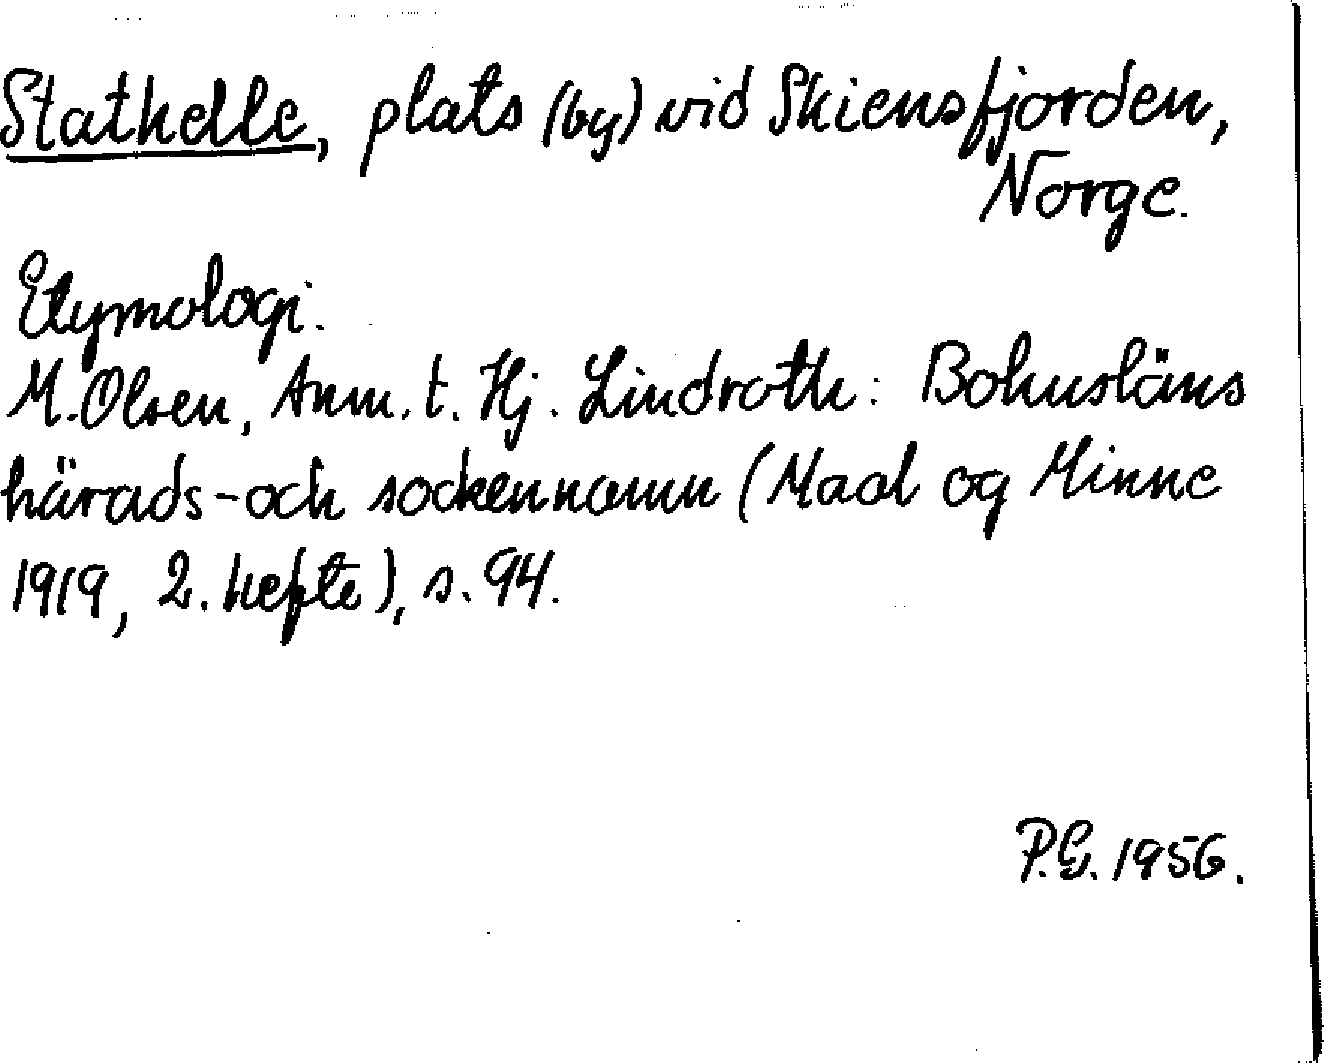 Stathelle, plats (by) vid Skiensfjorden,
Norge.
Etymologi.
M. Olsen, Anm. t. Hj. Lindroth: Bohusläns
härads- och sockennamn (Maal og Minne
1919, 2. hefte), s. 94.
P.G. 1956.